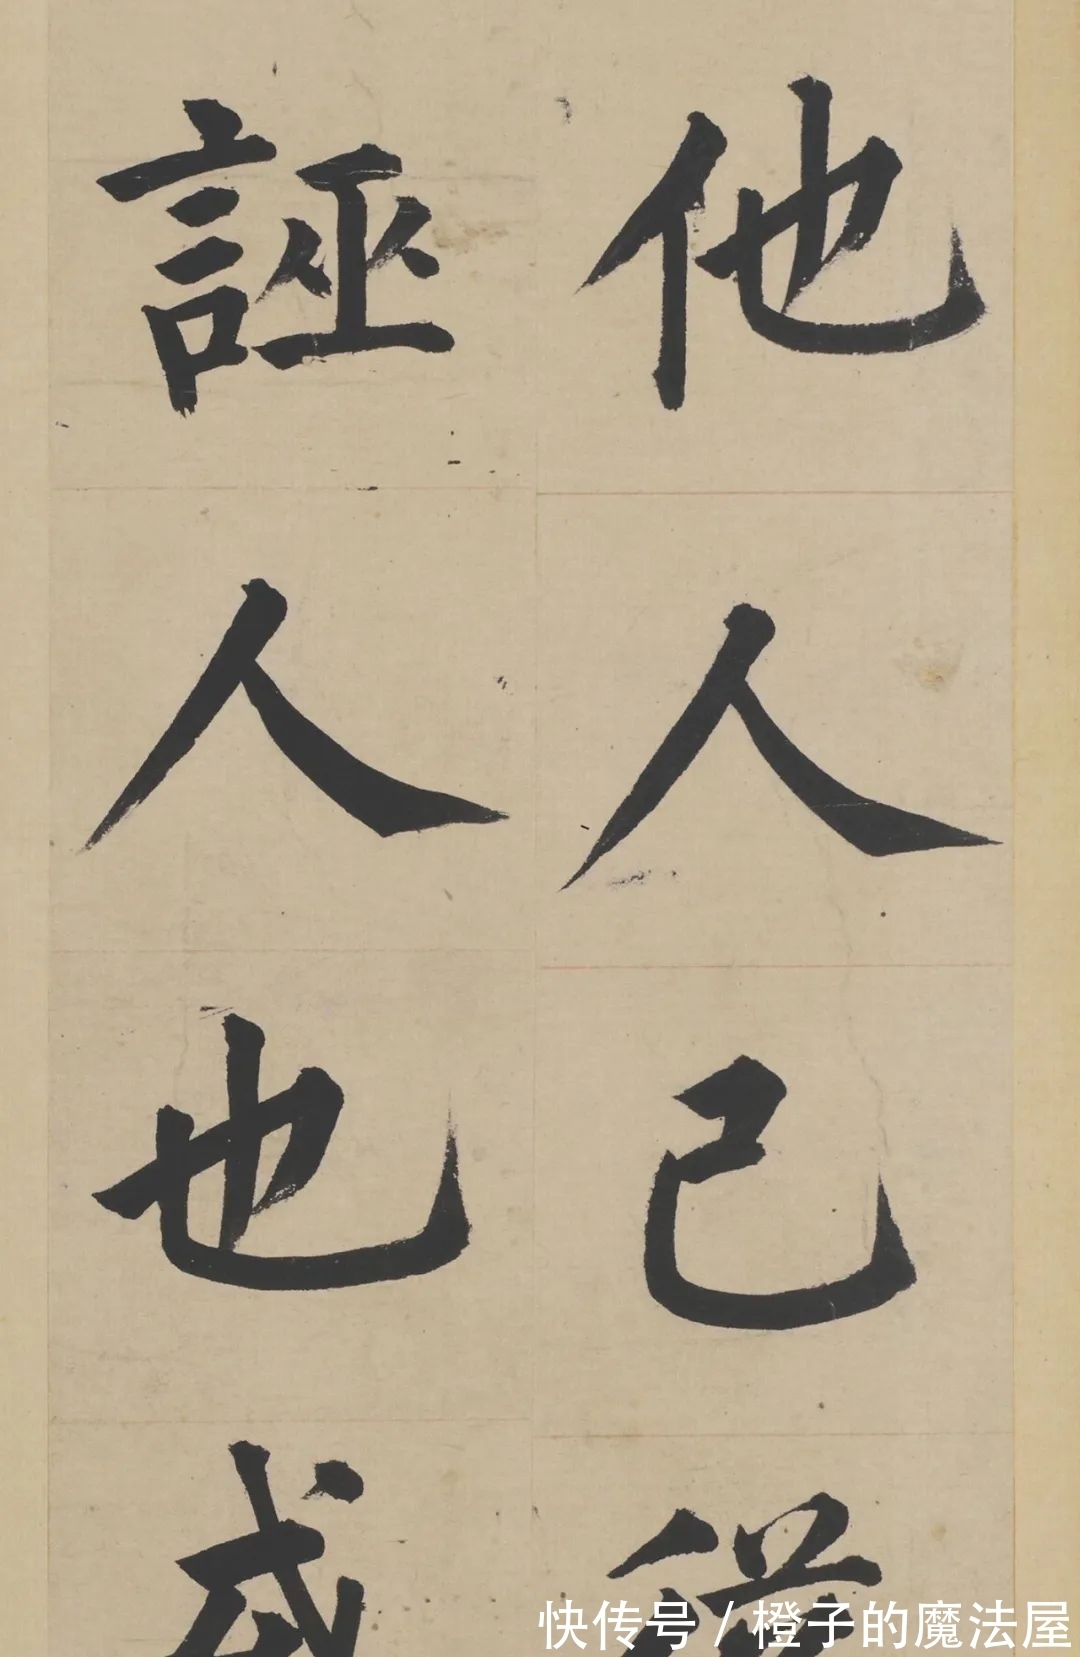 他人己
誣人也
快传号 / 橙子的魔法屋